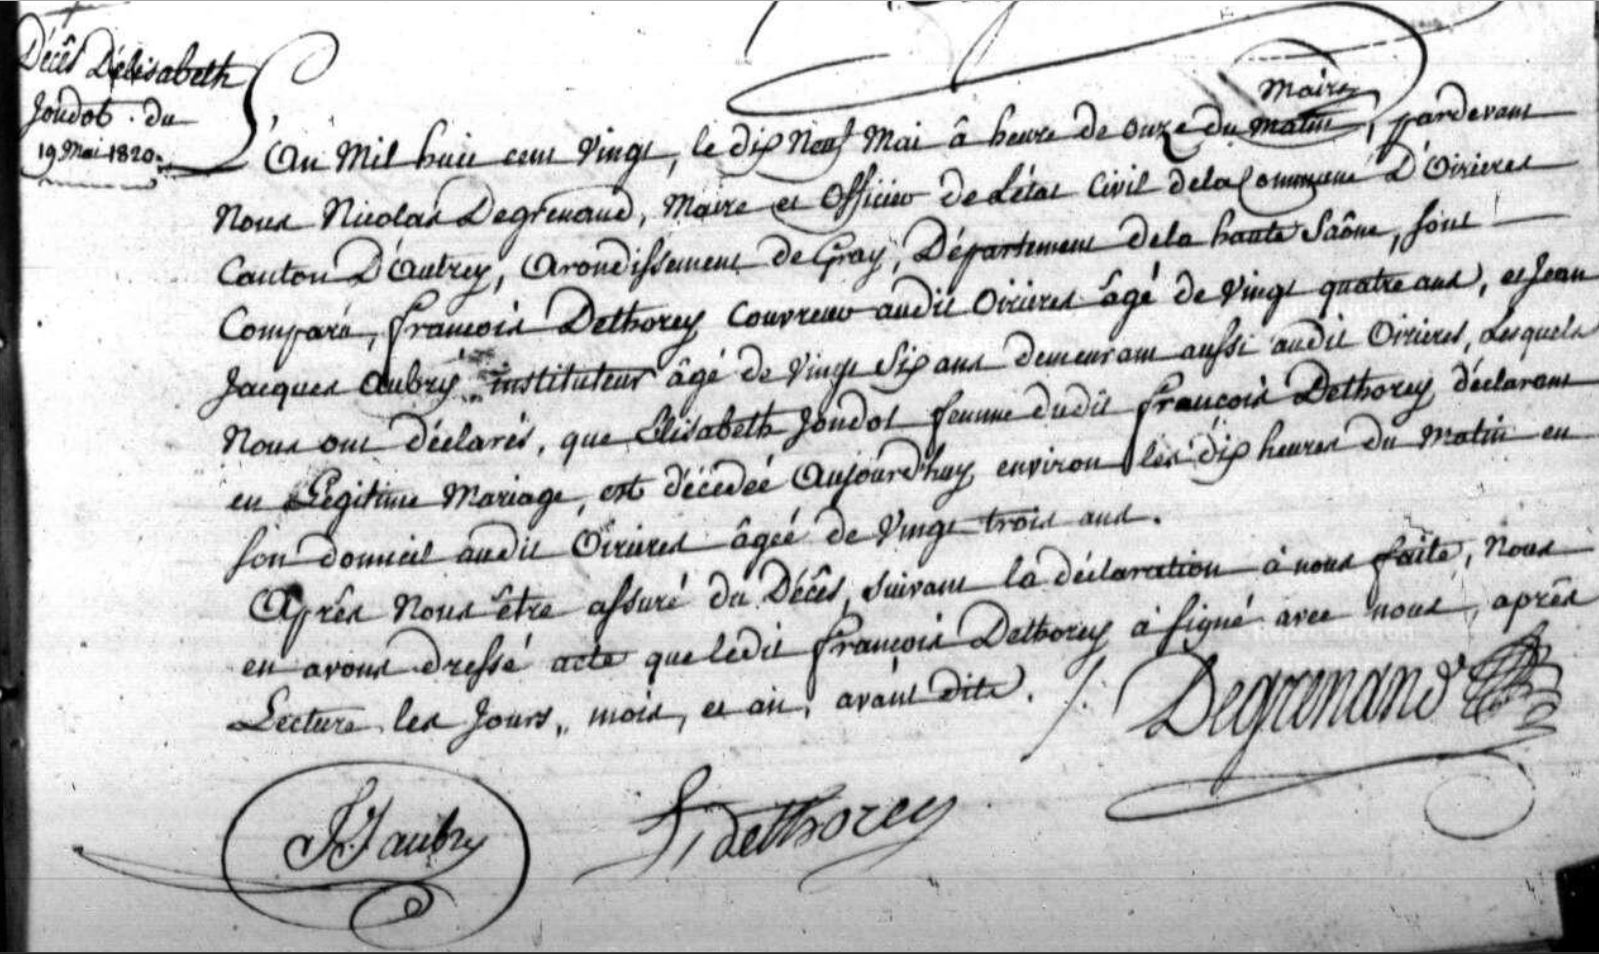 Décês D'élisabeth
Joudot du
19 Mai 1820.
L'An Mil huit cent Vingt, le dix Neuf Mai â heure de onze du matin, pardevant
Maire
Nous Nicolas Degrenand, Maire et Officier de L'état Civil de la Commune D'Oirieres
Canton D'Autrey, Arondissement de Gray, Département dela haute Saône, sont
Comparu, francois Dethorey Couvreur audit Oirieres âgé de Vingt quatre ans, et Jean
Jacques Aubry instituteur âgé de Vingt Six ans demeurant aussi audit Oirieres, Lesquels
Nous ont déclarés, que Elisabeth Joudot femme dudit francois Dethorey déclarant
en Légitime Mariage, est décédée Aujourd'huy environ les dix heures du Matin en
son domicil audit Oirieres âgéé de Vingt trois ans.
Après Nous être assuré du Décês, suivant la déclaration à nous faite, Nous
en avons dressé acte que ledit francois Dethorey à signé avec nous, après
Lecture les Jours, mois, et an, avant dits.
Degrenand
JJ aubry
f dethorey